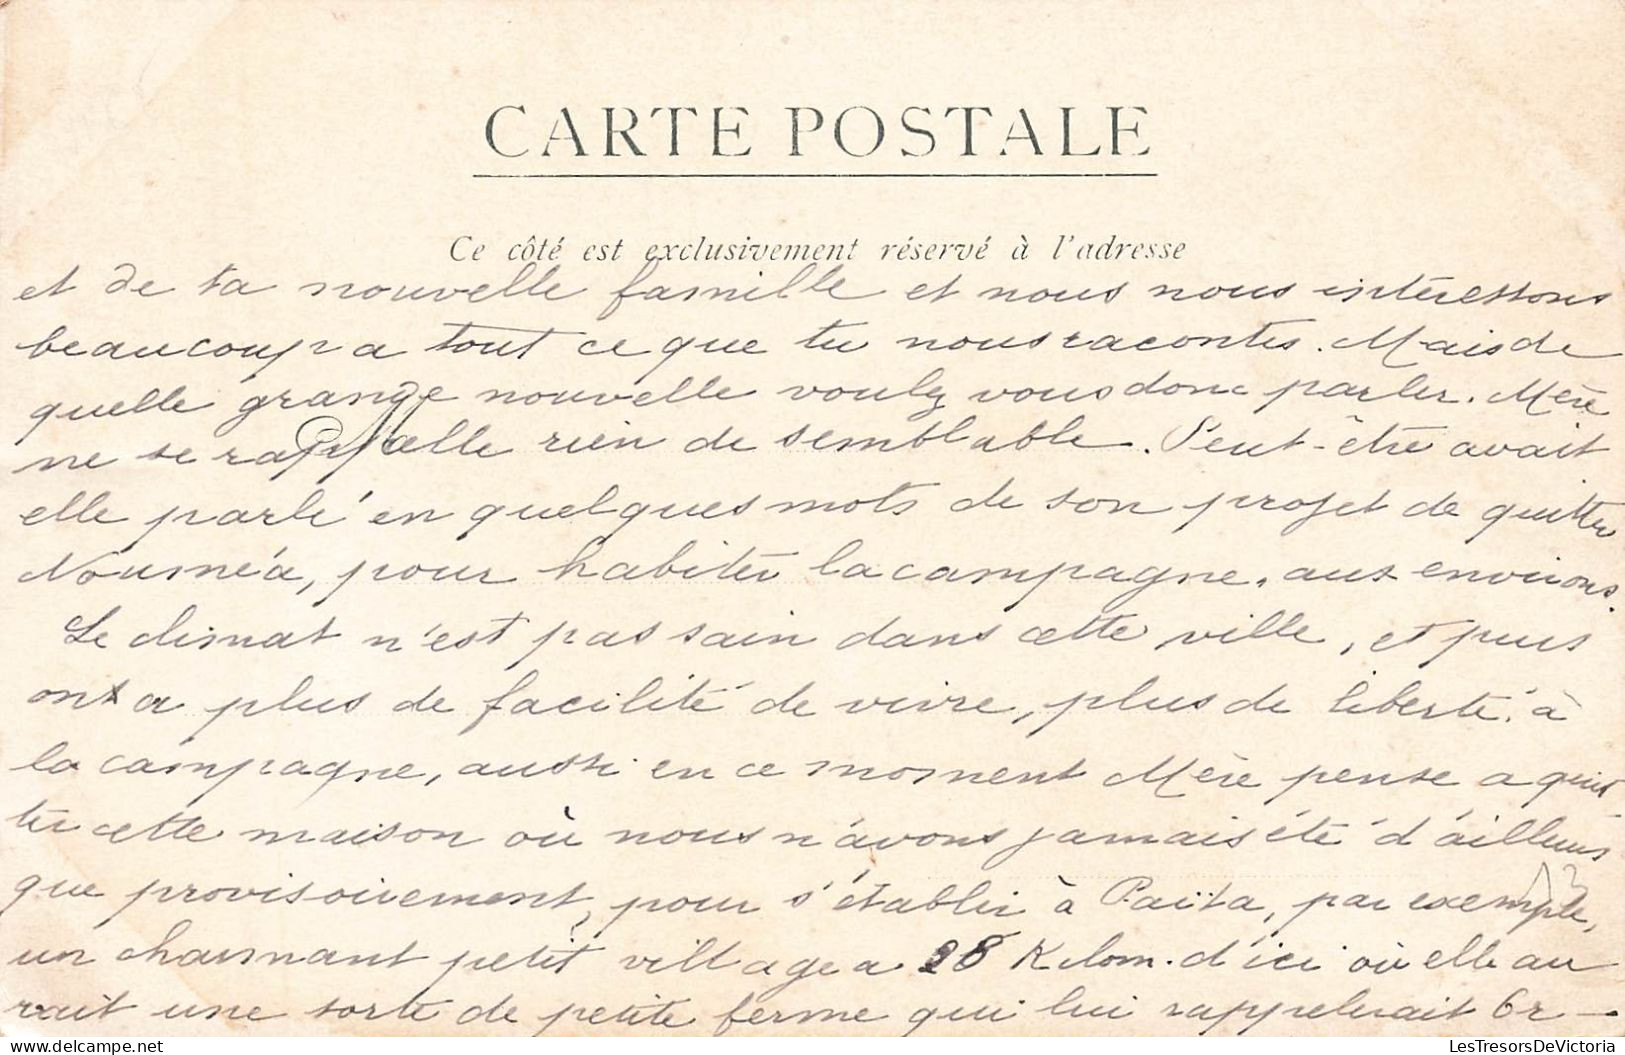 CARTE POSTALE
Ce côté est exclusivement réservé à l'adresse
et de ta nouvelle famille et nous nous intéressons
beaucoup a tout ce que tu nous racontes. Mais de
quelle grande nouvelle voulez vous donc parler. Mère
ne se rappelle rien de semblable. Peut-être avait
elle parlé en quelques mots de son projet de quitter
Nouméa, pour habiter la campagne, aux environs.
Le climat n'est pas sain dans cette ville, et puis
on a plus de facilité de vivre, plus de liberté à
la campagne, aussi en ce moment Mère pense a quit
ter cette maison où nous n'avons jamais été d'ailleurs
que provisoirement, pour s'établir à Païta, par exemple,
un charmant petit village a 28 Kilom. d'ici où elle au
rait une sorte de petite ferme qui lui rappelerait Or-
LesTresorsDeVictoria